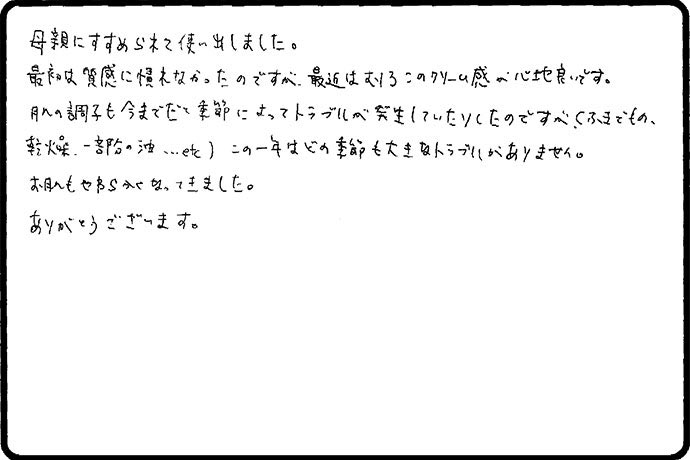 母親にすすめられて使い出しました。
最初は質感に慣れなかったのですが、最近はむしろこのクリーム感が心地良いです。
肌の調子も今までだと季節によってトラブルが発生していたりしたのですが(ふきでもの、
乾燥、一部分の油…etc) この一年はどの季節も大きなトラブルがありません。
お肌もやわらかくなってきました。
ありがとうございます。